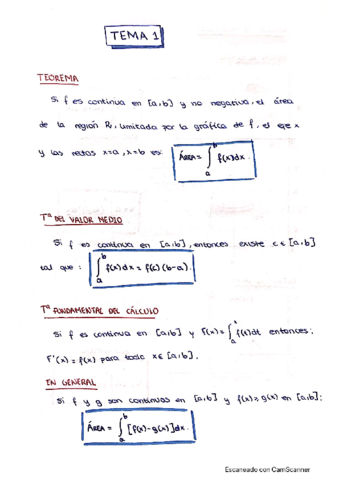 TEMA 1
TEOREMA
Si f es continua en [a,b] y no negativa, el área
de la región R, limitada por la gráfica de f, el eje x
y las rectas x=a, x=b es: ÁREA = ∫_a^b f(x)dx.
Tª DEL VALOR MEDIO
Si f es continua en [a,b], entonces existe c ∈ [a,b]
tal que: ∫_a^b f(x)dx = f(c)(b-a).
Tª FUNDAMENTAL DEL CÁLCULO
Si f es continua en [a,b] y F(x) = ∫_a^x f(t)dt entonces:
F'(x) = f(x) para todo x ∈ [a,b].
EN GENERAL
Si f y g son continuas en [a,b] y f(x) ≥ g(x) en [a,b]:
ÁREA = ∫_a^b [f(x)-g(x)]dx.
Escaneado con CamScanner